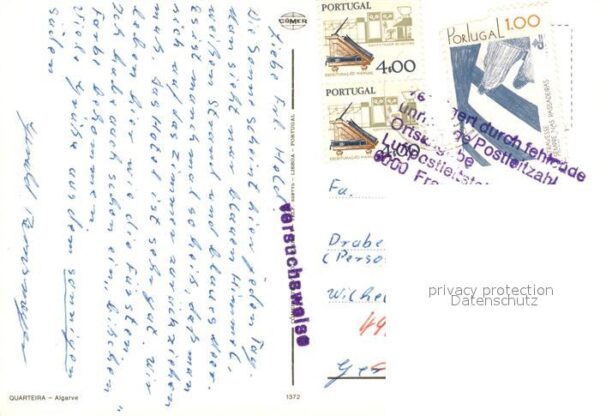 Liebe Frl. Held
Die Sonne scheint hier jeden Tag.
Man sieht nur blauen Himmel,
weißen Strand und blaues Meer.
Es ist manchmal so heiß daß man
sich auf das Zimmer zurückziehen
muß. Das Hotel ist sehr gut. Wir
leben hier wie die Fürsten.
Ich habe auch schon ein bißchen
Farbe bekommen.
Viele Grüße aus dem sonnigen
Süden
QUARTEIRA – Algarve
1372
COMER
LISBOA - PORTUGAL
versuchsweise
PORTUGAL
4.00
PORTUGAL
4.00
PORTUGAL 1.00
durch fehlende
Postleitzahl
Ortsangabe
Luftpostleitstelle
6000 Fra
Fa.
Drabe
(Perso
Wilhe
Ger
privacy protection
Datenschutz